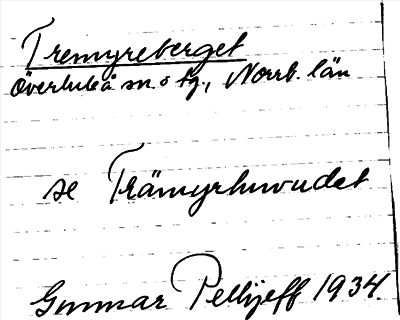 Tremyreberget
Överluleå sn. o tg., Norrb. län
se Trämyrhuvudet
Gunnar Pellijeff 1934.